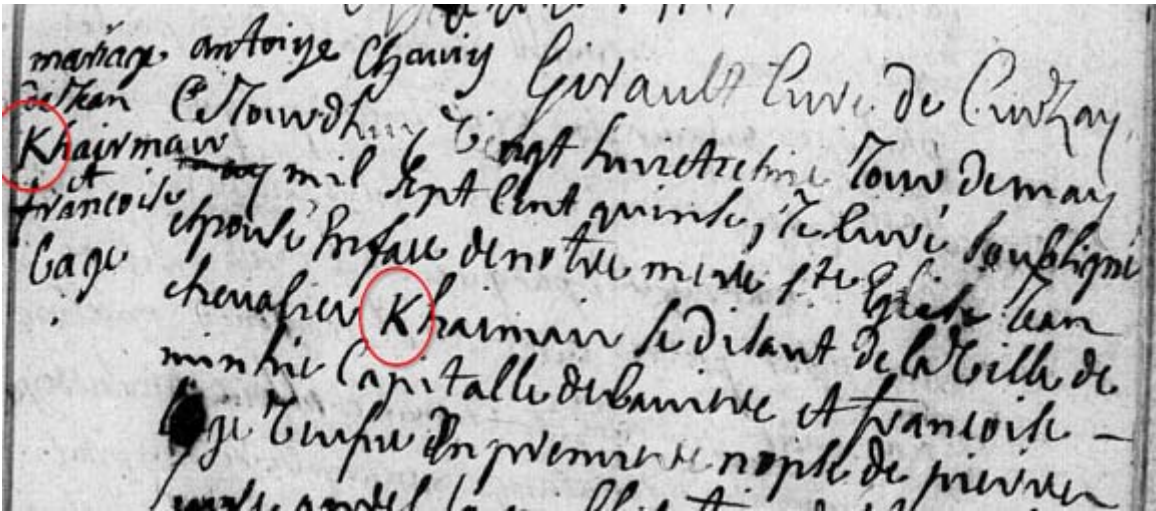 mariage
de Jean
Khairmair
et
francoise
Cage
antoine Chauvij
Girault Curé de Curzay
Ce Jourdhuy vingt huictiesme Jour de may
may mil sept Cent quinse, Je Curé soubsigné
espousé En face de notre mere ste Eglise Jean
chevalier Khairmair se disant de la Ville de
minhic Capitalle de baviere et francoise
Cage veusve En premiere nopse de pierre